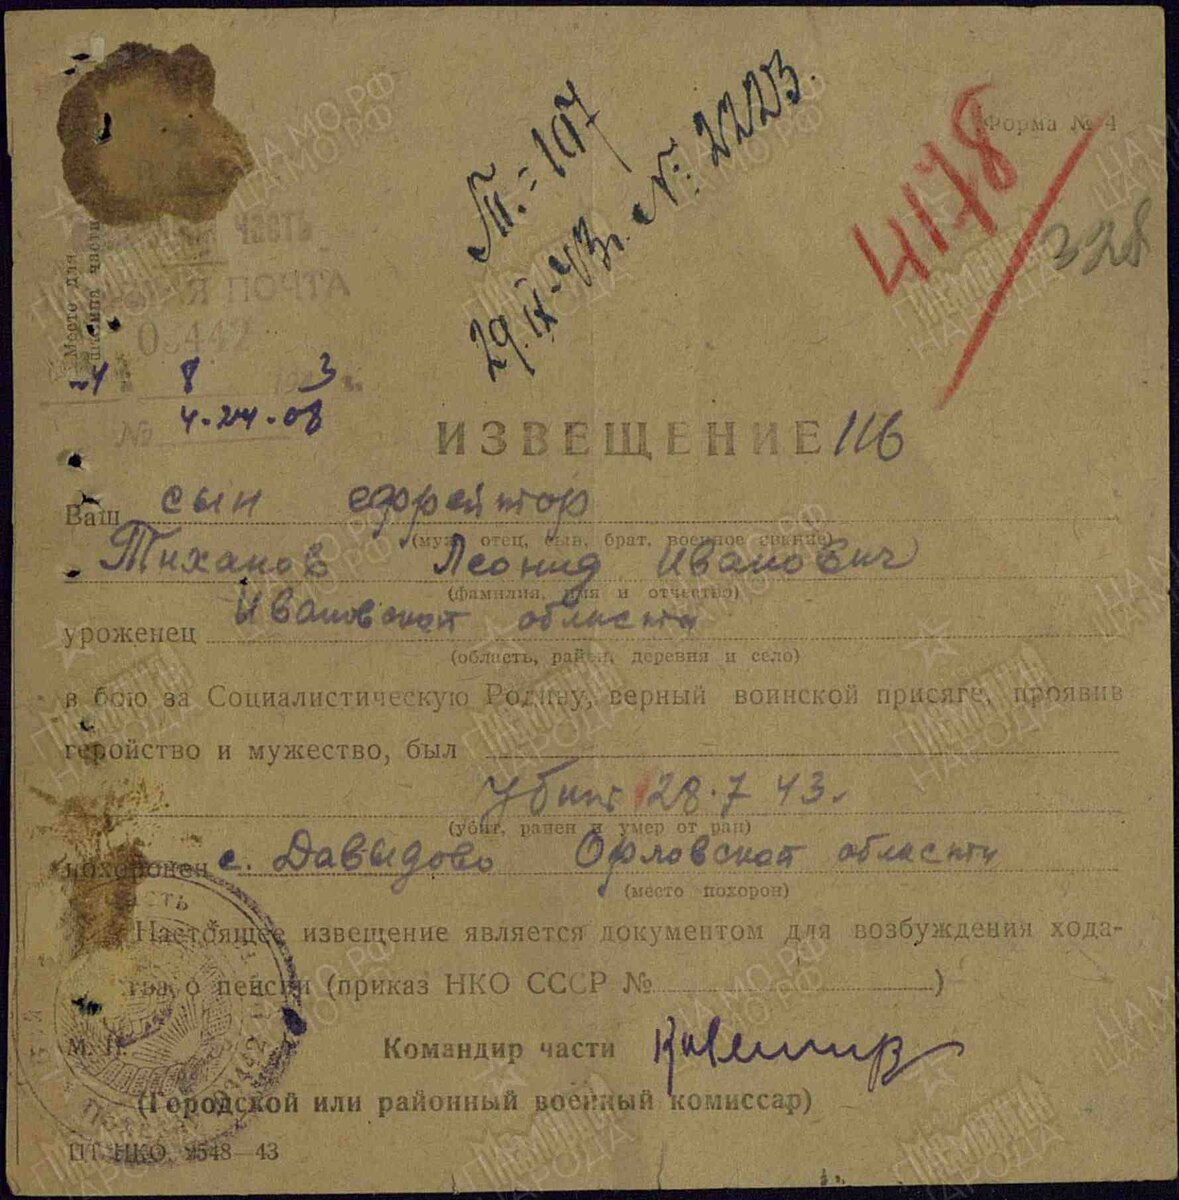 Форма № 4
4178
328
Гп.=107
29.IX-43г. № 2223.
Место для
штампа части
часть
ПОЧТА
8 3
№ 4-24-08
ИЗВЕЩЕНИЕ 116
Ваш сын ефрейтор
(муж, отец, сын, брат, военное звание)
Тиханов Леонид Иванович
(фамилия, имя и отчество)
уроженец Ивановской области
(область, район, деревня и село)
в бою за Социалистическую Родину, верный воинской присяге, проявив
геройство и мужество, был
убит 28.7 43.
(убит, ранен и умер от ран)
похоронен с. Давыдово Орловской области
(место похорон)
Настоящее извещение является документом для возбуждения хода-
тва о пенсии (приказ НКО СССР № )
М. П. Командир части
(Городской или районный военный комиссар)
ЦТ НКО. 9548—43
ПАМЯТЬ НАРОДА
ЦАМО.РФ